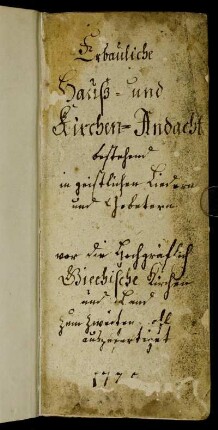 Erbauliche
Hauß- und
Kirchen-Andacht
bestehend
in geistlichen Liedern
und Gebetern
vor die Hochgräflich
Giechische Kirchen
und Land
zum Zweiten
ausgefertiget